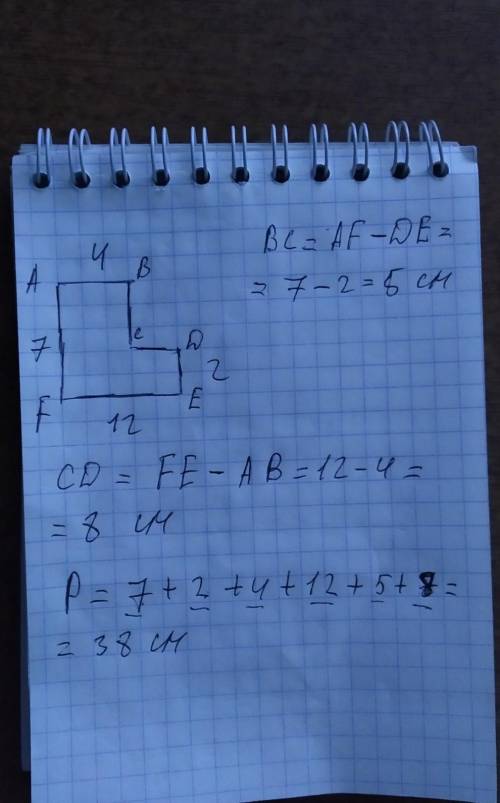 BC = AF - DE =
= 7 - 2 = 5 см
4
A B
7 C D
2
F E
12
CD = FE - AB = 12 - 4 =
= 8 см
P = 7 + 2 + 4 + 12 + 5 + 8 =
= 38 см